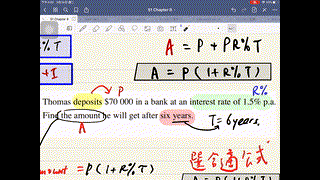 51 Chapter 8
% T
+ I
A = P + PR%T
A = P(1+R%)T)
P
R%
Thomas deposits $70 000 in a bank at an interest rate of 1.5% p.a.
Find the amount he will get after six years.
A
T = 6 years.
= P(1+R%T)
選合適公式